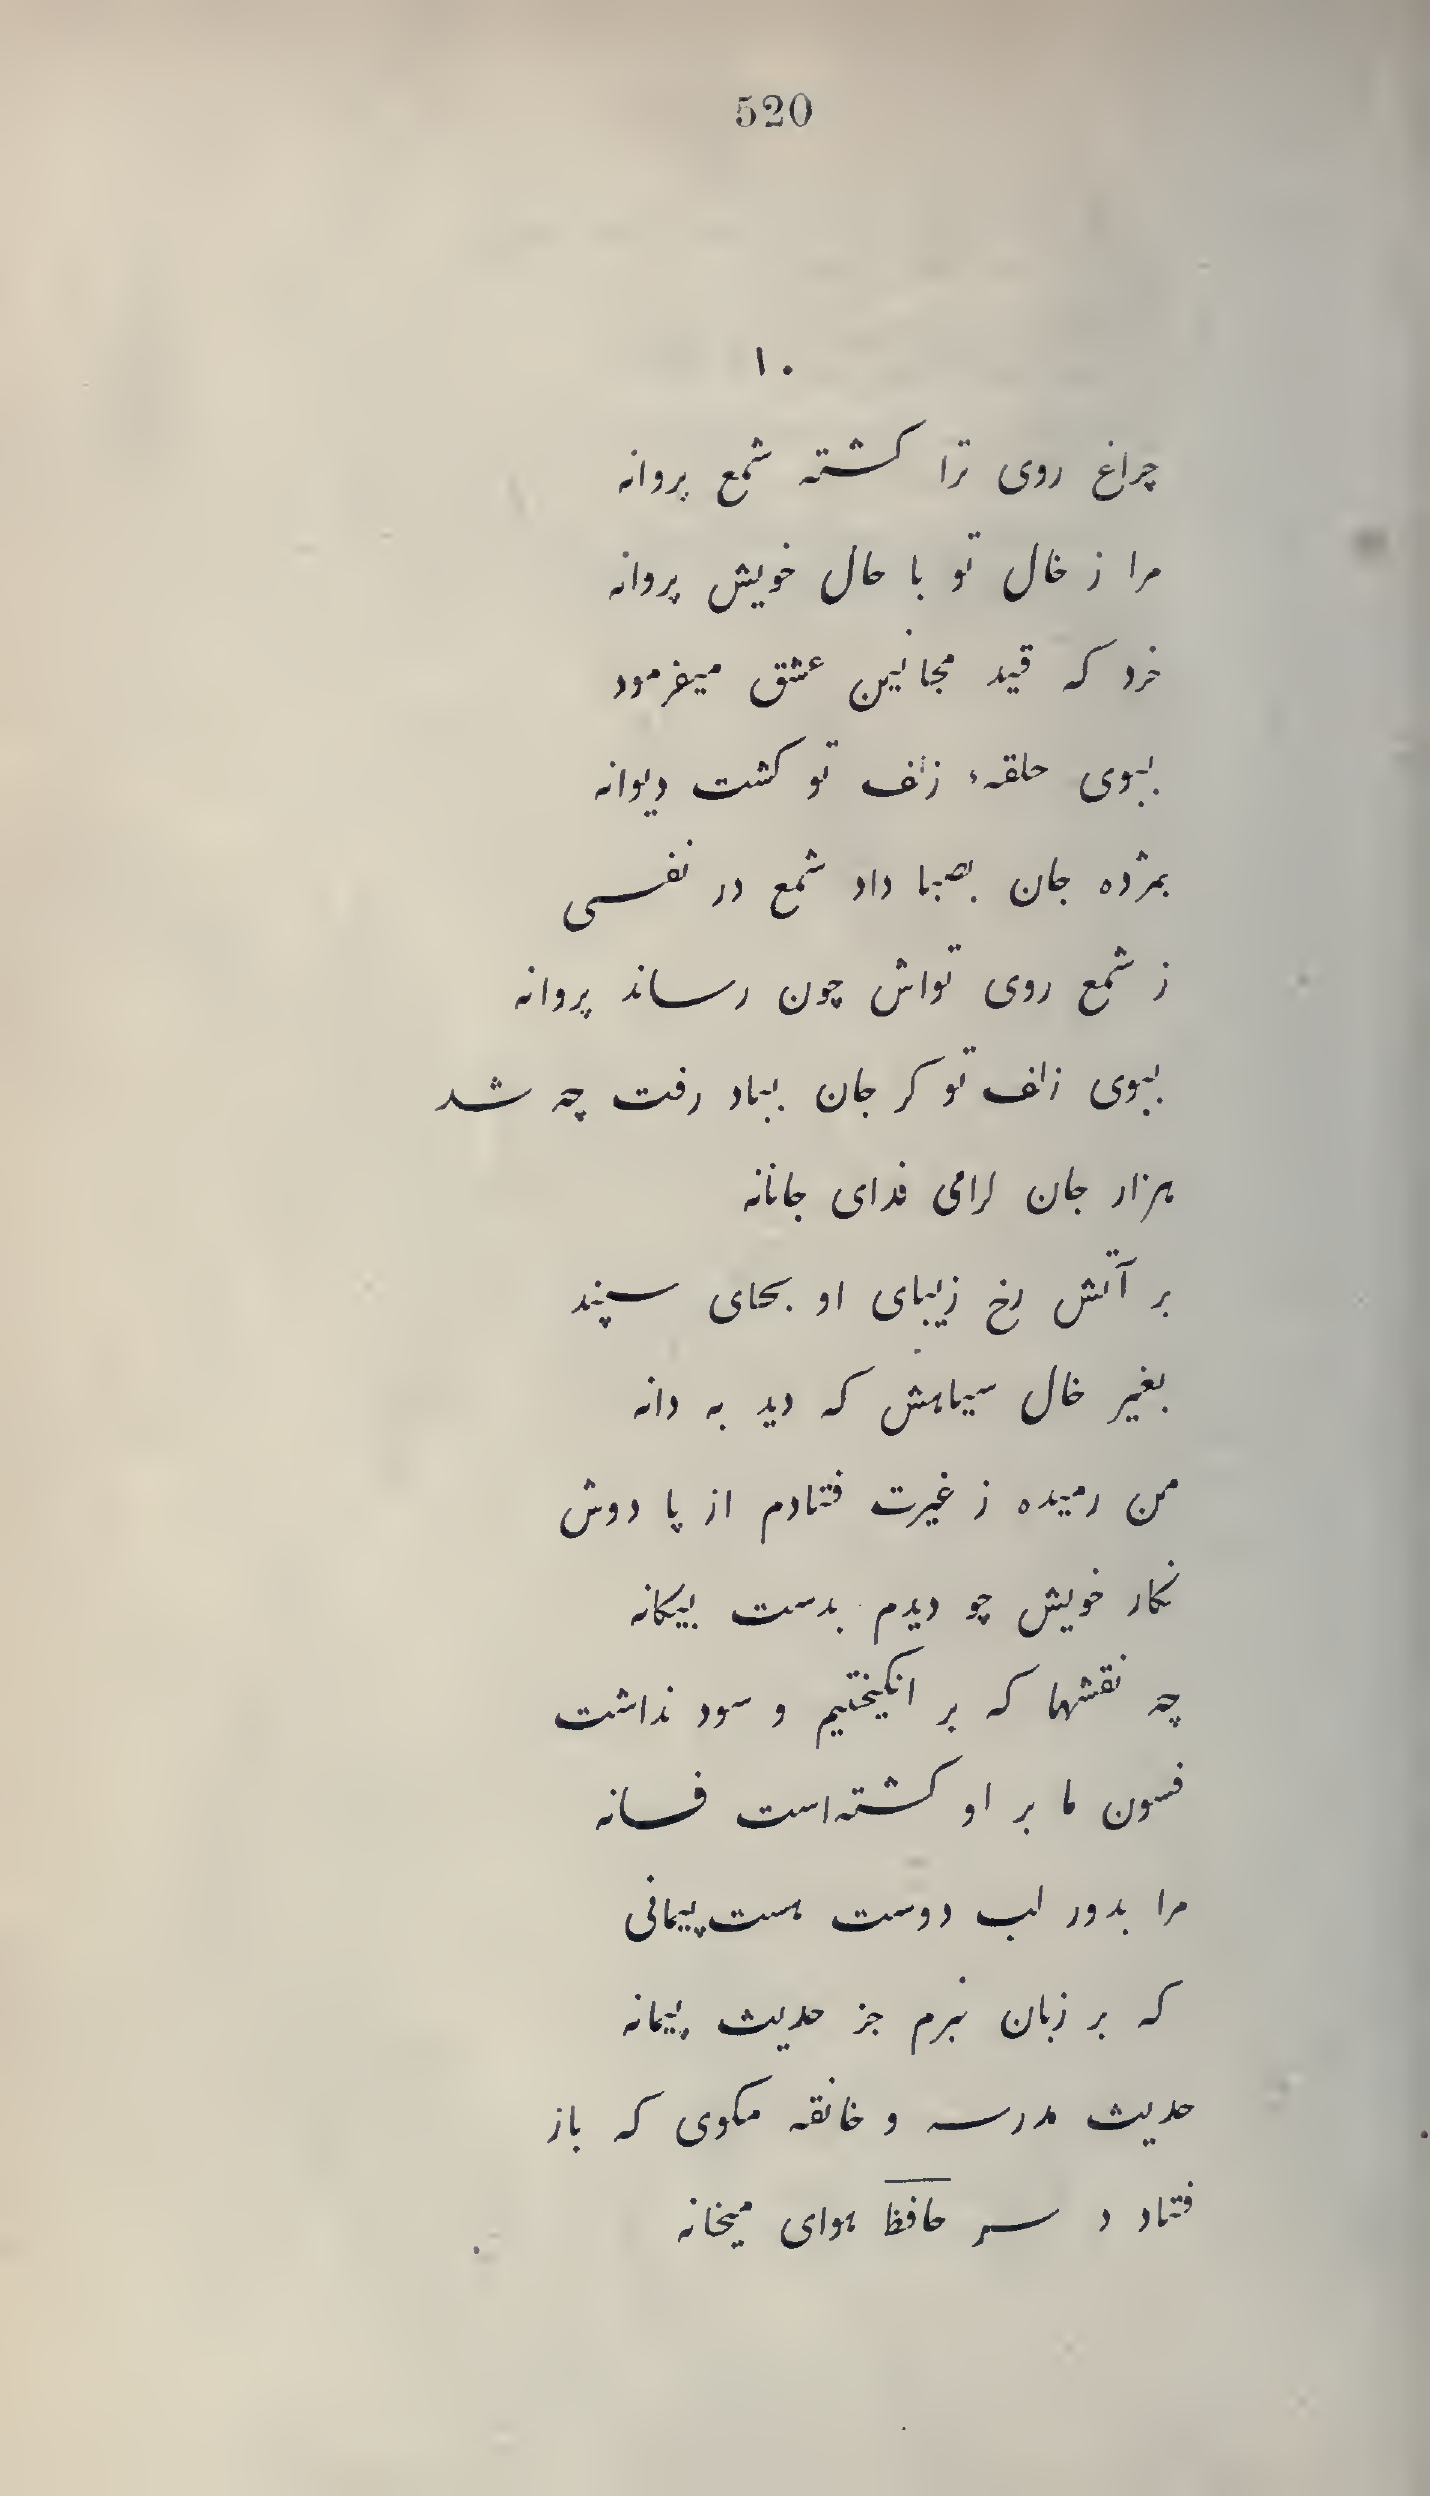 520
۱۰
چراغ روی ترا کشته شمع پروانه
مرا ز خال تو با حال خویش پروانه
خرد که قید مجانین عشق میفرمود
ببوی حلقهء زلف تو کشت دیوانه
بمژده جان بصبا داد شمع در نفسی
ز شمع روی تواش چون رساند پروانه
ببوی زلف تو کر جان بباد رفت چه شد
هزار جان کرامی فدای جانانه
بر آتش رخ زیبای او بجای سپند
بغیر خال سیاهش که دید به دانه
من رمیده ز غیرت فتادم از پا دوش
نکار خویش چو دیدم بدست بیکانه
چه نقشها که بر انکیختیم و سود نداشت
فسون ما بر او کشته‌است فسانه
مرا بدور لب دوست هست پیمانی
که بر زبان نبرم جز حدیث پیمانه
حدیث مدرسه و خانقه مکوی که باز
فتاد د سر حافظ هوای میخانه